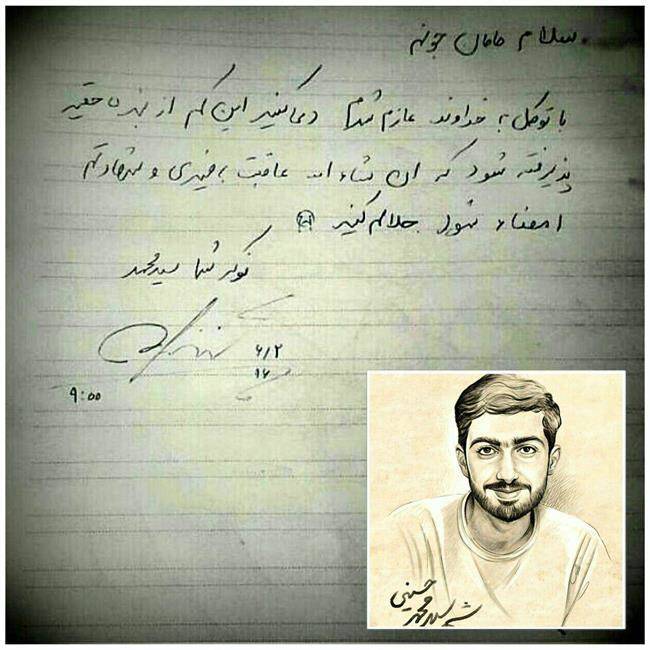 سلام مامان جونم
با توکل به خداوند عازم شدم دعا کنید این کم از بنده حقیر
پذیرفته شود که ان شاء الله عاقبت بخیری و شهادتم
امضاء شود حلالم کنید
نوکر شما سید محمد
۶/۲
۱۶
۹:۰۰
شهید سید محمد حسینی